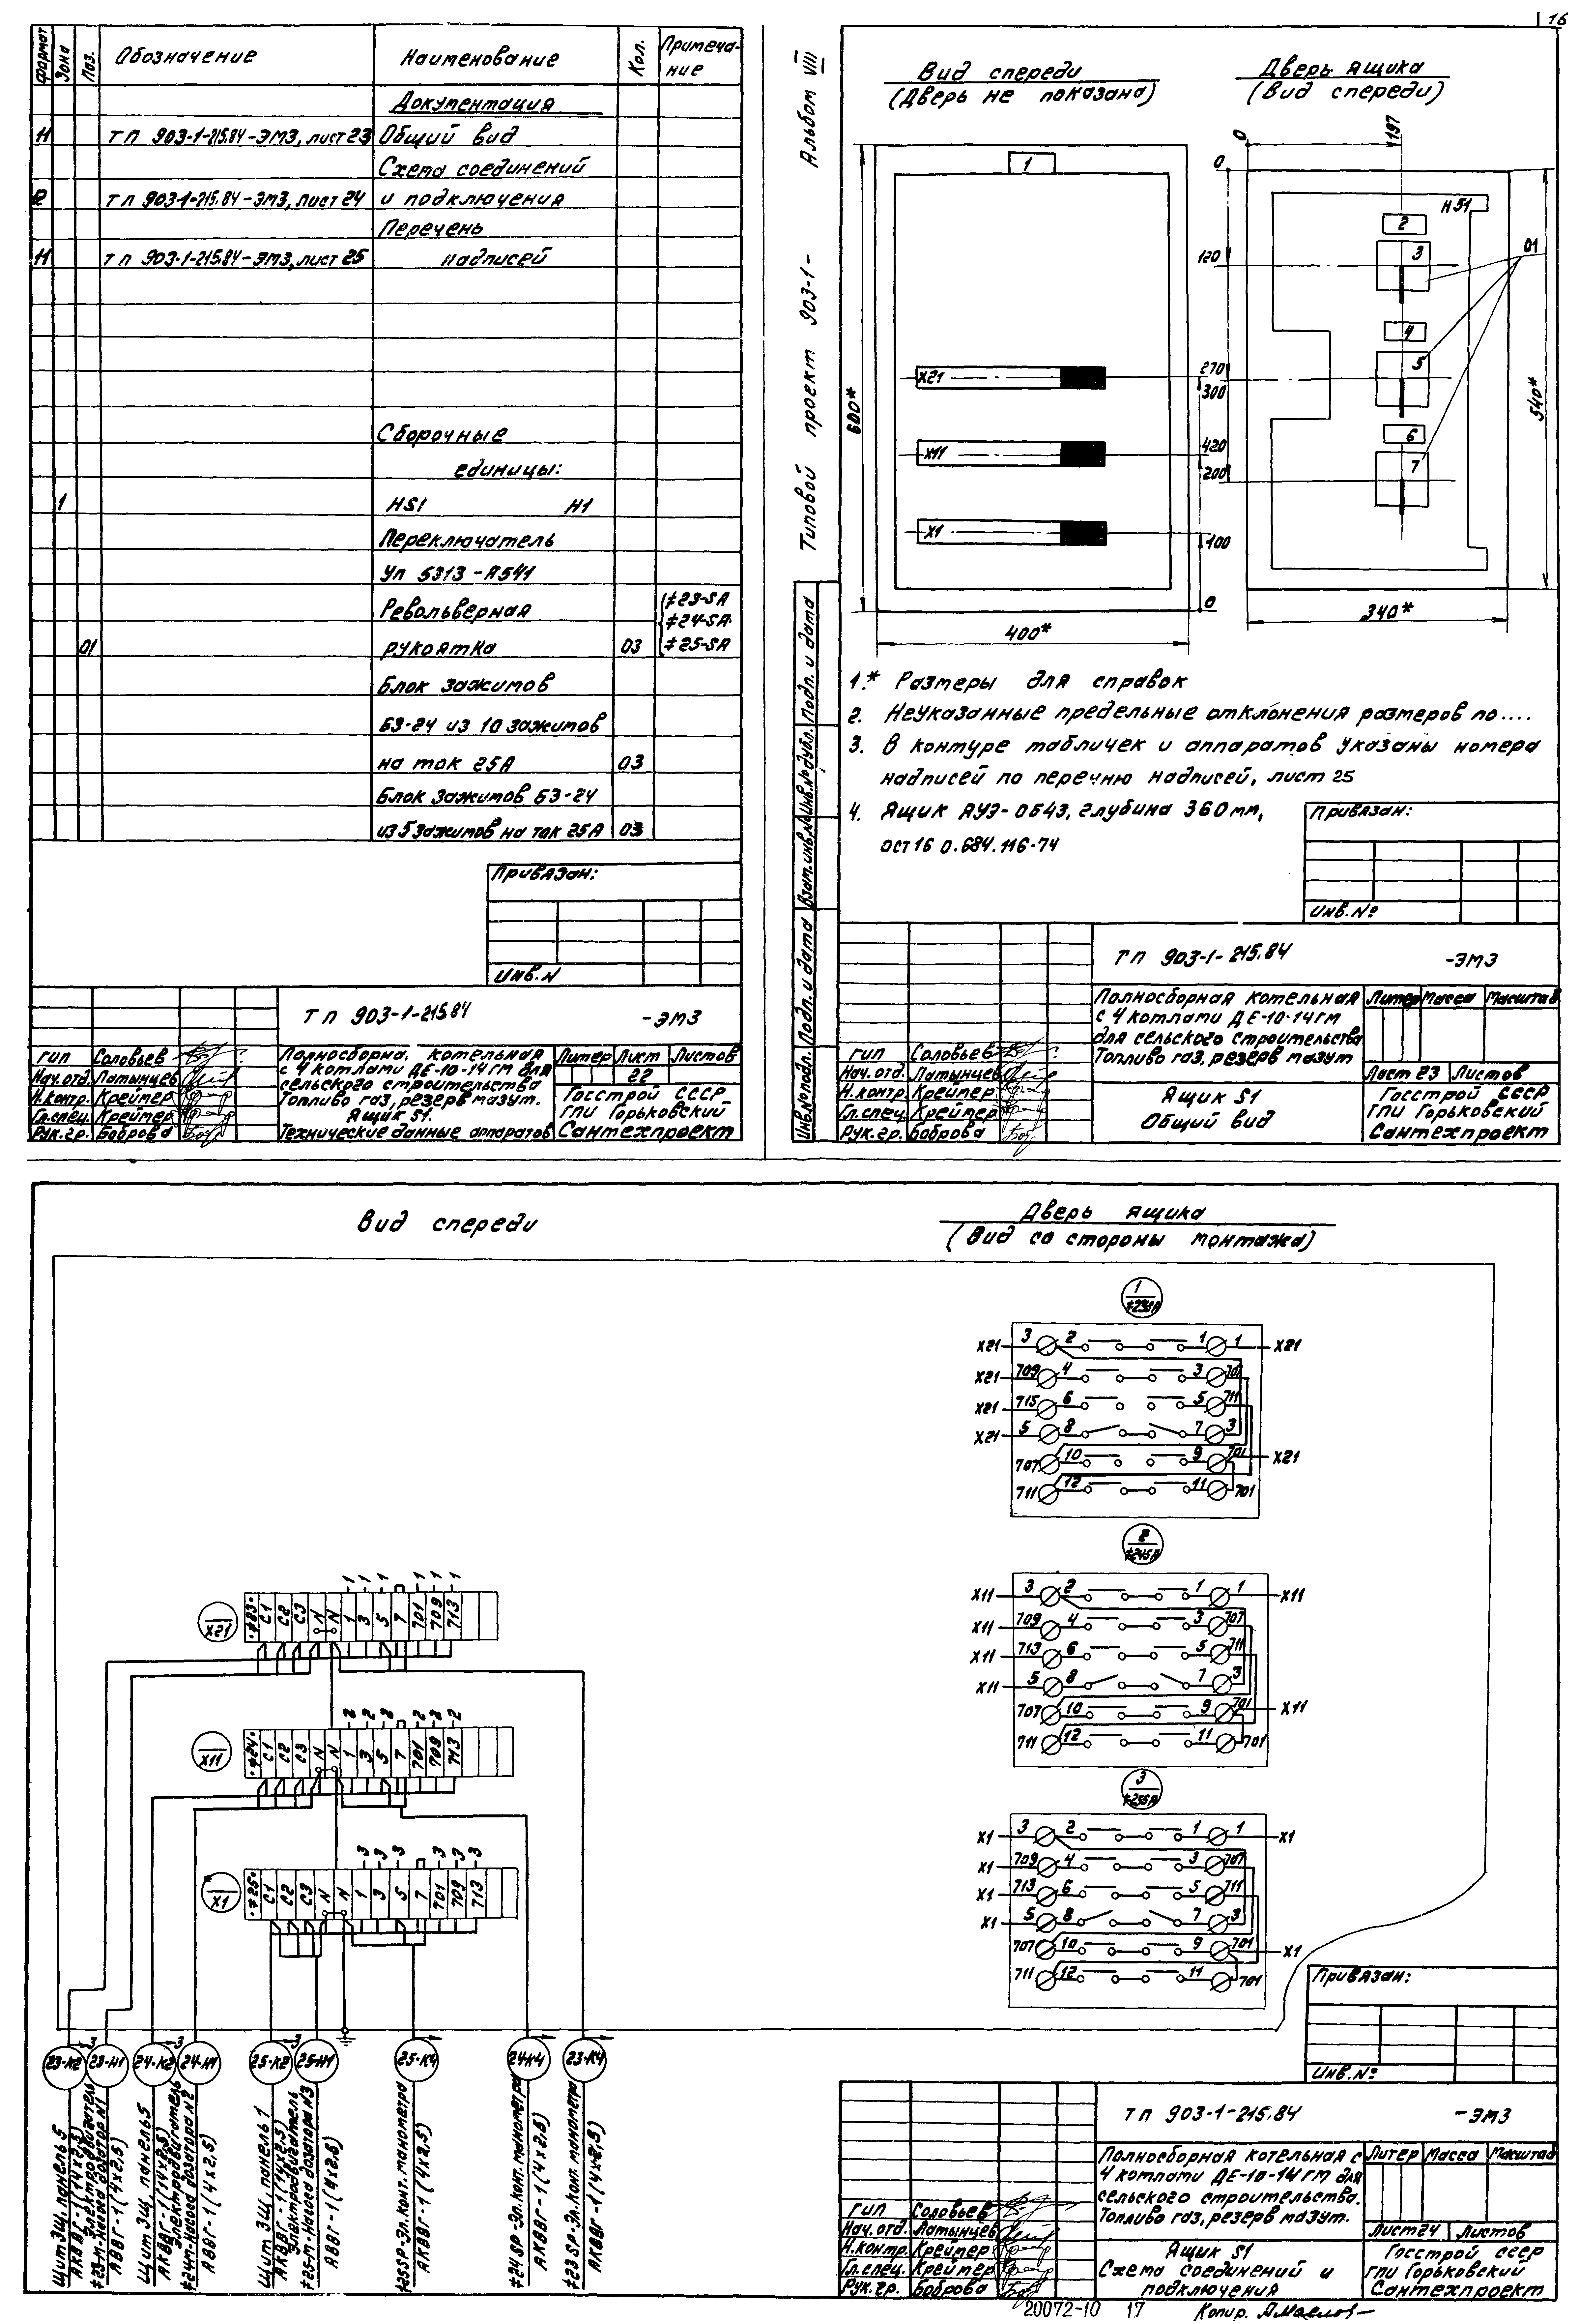 16
Формат
Зона
Поз.
Обозначение
Наименование
Кол.
Примеча-
ние
Документация
Н
ТП 903-1-215.84-ЭМ3, лист 23
Общий вид
Схема соединений
ТП 903-1-215.84-ЭМ3, лист 24
и подключения
Перечень
Н
ТП 903-1-215.84-ЭМ3, лист 25
надписей
Сборочные
единицы:
1
HS1 Н1
Переключатель
УП 5313-А541
Револьверная
рукоятка
01
03
‡23-SA
‡24-SA
‡25-SA
Блок зажимов
БЗ-24 из 10 зажимов
на ток 25А
03
Блок зажимов БЗ-24
из 5 зажимов на ток 25А
03
Привязан:
Инв.N
ТП 903-1-215.84
-ЭМ3
ГИП Соловьев
Нач.отд. Латынцев
Н.контр. Креймер
Гл.спец. Креймер
Рук.гр. Боброва
Полносборна. котельная
с 4 котлами ДЕ-10-14ГМ для
сельского строительства
Топливо газ, резерв мазут.
Ящик S1.
Технические данные аппаратов
Литер Лист Листов
22
Госстрой СССР
ГПИ Горьковский
Сантехпроект
Типовой проект 903-1- Альбом VIII
Инв.Nподл. Подп. и дата Взам.инв.N Инв.Nдубл. Подп. и дата
Вид спереди
(Дверь не показана)
1
Х21
Х11
Х1
600*
400*
300
200
100
0
Дверь ящика
(Вид спереди)
0
197
0
120
270
420
HS1
2
3
4
5
6
7
01
540*
340*
1.* Размеры для справок
2. Неуказанные предельные отклонения размеров по....
3. В контуре табличек и аппаратов указаны номера
надписей по перечню надписей, лист 25
4. Ящик ЯУЭ-0643, глубина 360 мм,
ост 16 0.684.116-74
Привязан:
Инв.No
ТП 903-1-215.84
-ЭМ3
ГИП Соловьев
Нач.отд. Латынцев
Н.контр. Крейтер
Гл.спец. Крейтер
Рук.гр. Боброва
Полносборная котельная
с 4 котлами ДЕ-10-14ГМ
для сельского строительства
Топливо газ, резерв мазут
Ящик S1
Общий вид
Литер Масса Масштаб
Лист 23 Листов
Госстрой СССР
ГПИ Горьковский
Сантехпроект
Вид спереди
Дверь ящика
(Вид со стороны монтажа)
1
‡23SA
Х21 3 2 1 1 Х21
Х21 709 4 3 707
Х21 715 6 5 711
Х21 5 8 7 3
707 10 9 701 Х21
711 12 11 701
2
‡24SA
Х11 3 2 1 1 Х11
Х11 709 4 3 707
Х11 713 6 5 711
Х11 5 8 7 3
707 10 9 701 Х11
711 12 11 701
3
‡25SA
Х1 3 2 1 1 Х1
Х1 709 4 3 707
Х1 713 6 5 711
Х1 5 8 7 3
707 10 9 701 Х1
711 12 11 701
1 1 1 1 1 1
Х21
‡23 С1 С2 С3 N N 1 3 5 7 701 709 713
2 2 2 2 2 2
Х11
‡24 С1 С2 С3 N N 1 3 5 7 701 709 713
3 3 3 3 3 3
Х1
‡25 С1 С2 С3 N N 1 3 5 7 701 709 713
3 3 3
23-К2 23-Н1 24-К2 24-Н1 25-К2 25-Н1 25-К4 24-К4 23-К4
Щит ЗЩ, панель 5
АКВВГ-1(4х2,5)
Электродвигатель
‡23-М-насоса дозатор N1
АВВГ-1(4х2,5)
Щит ЗЩ, панель 5
АКВВГ-1(4х2,5)
Электродвигатель
‡24М-насоса дозатора N2
АВВГ-1(4х2,5)
Щит ЗЩ, панель 1
АКВВГ-1(4х2,5)
Электродвигатель
‡25-М-насоса дозатора N3
АВВГ-1(4х2,5)
‡25SP-Эл.конт.манометра
АКВВГ-1(4х2,5)
‡24SP-Эл.конт.манометра
АКВВГ-1(4х2,5)
‡23SP-Эл.конт.манометра
АКВВГ-1(4х2,5)
Привязан:
Инв.No
ТП 903-1-215.84
-ЭМ3
ГИП Соловьев
Нач.отд. Латынцев
Н.контр. Крейтер
Гл.спец. Крейтер
Рук.гр. Боброва
Полносборная котельная с
4 котлами ДЕ-10-14ГМ для
сельского строительства.
Топливо газ, резерв мазут.
Ящик S1
Схема соединений и
подключения
Литер Масса Масштаб
Лист 24 Листов
Госстрой СССР
ГПИ Горьковский
Сантехпроект
20072-10 17
Копир.